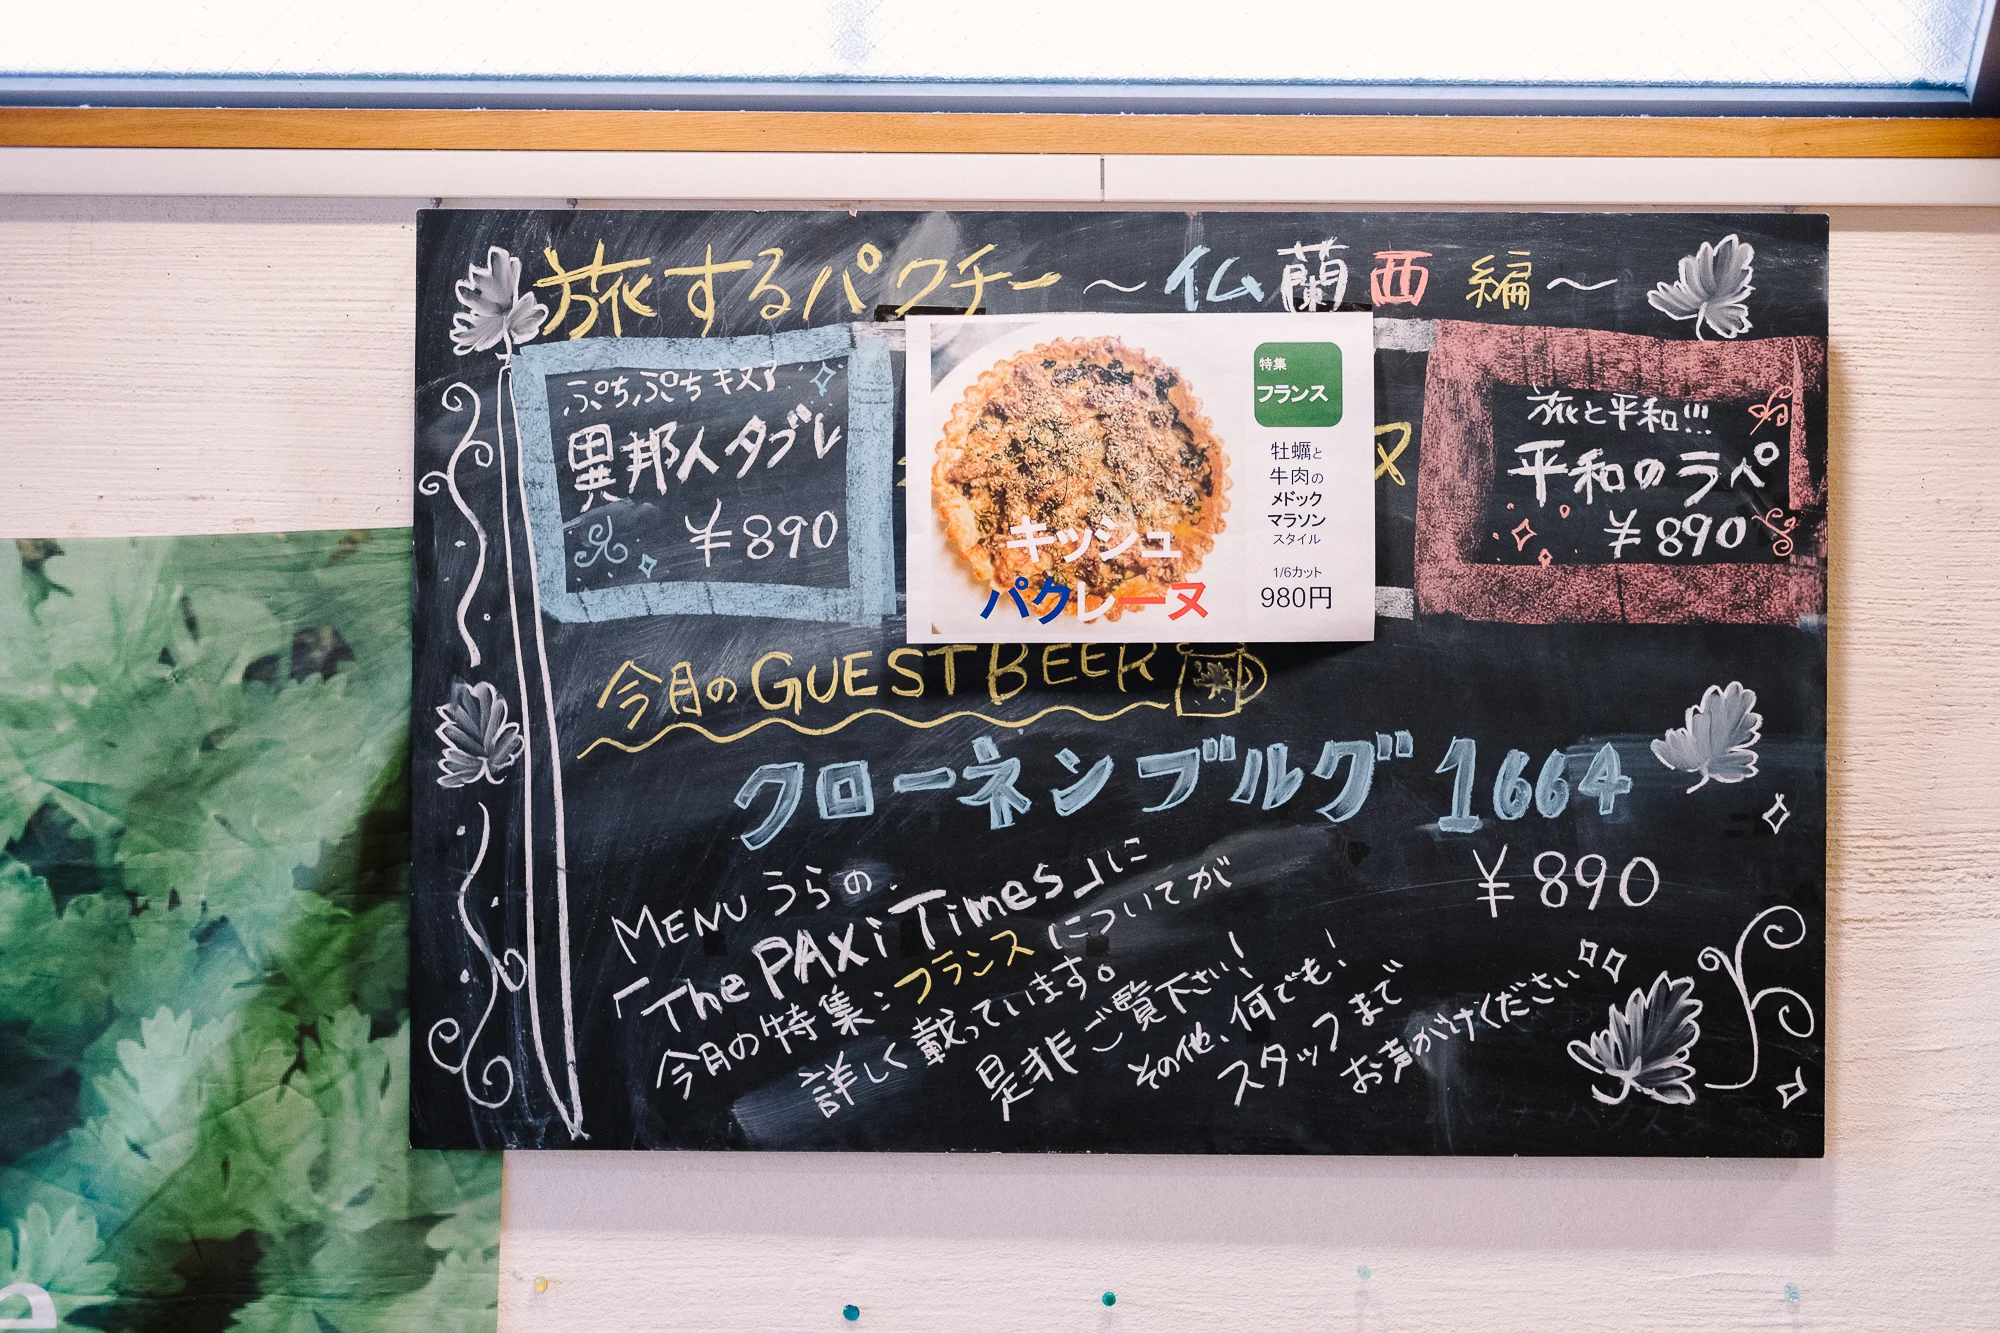 旅するパクチー～仏蘭西編～
ぷちぷちキヌア
異邦人タブレ
￥890
特集
フランス
牡蠣と
牛肉の
メドック
マラソン
スタイル
1/6カット
980円
キッシュ
パクレーヌ
ヌ
旅と平和!!!
平和のラペ
￥890
今月のGUEST BEER
クローネンブルグ1664
￥890
MENUうらの
「The PAXi Times」に
今月の特集:フランスについてが
詳しく載っています。
是非ご覧下さい!
その他、何でも!
スタッフまで
お声がけください
e